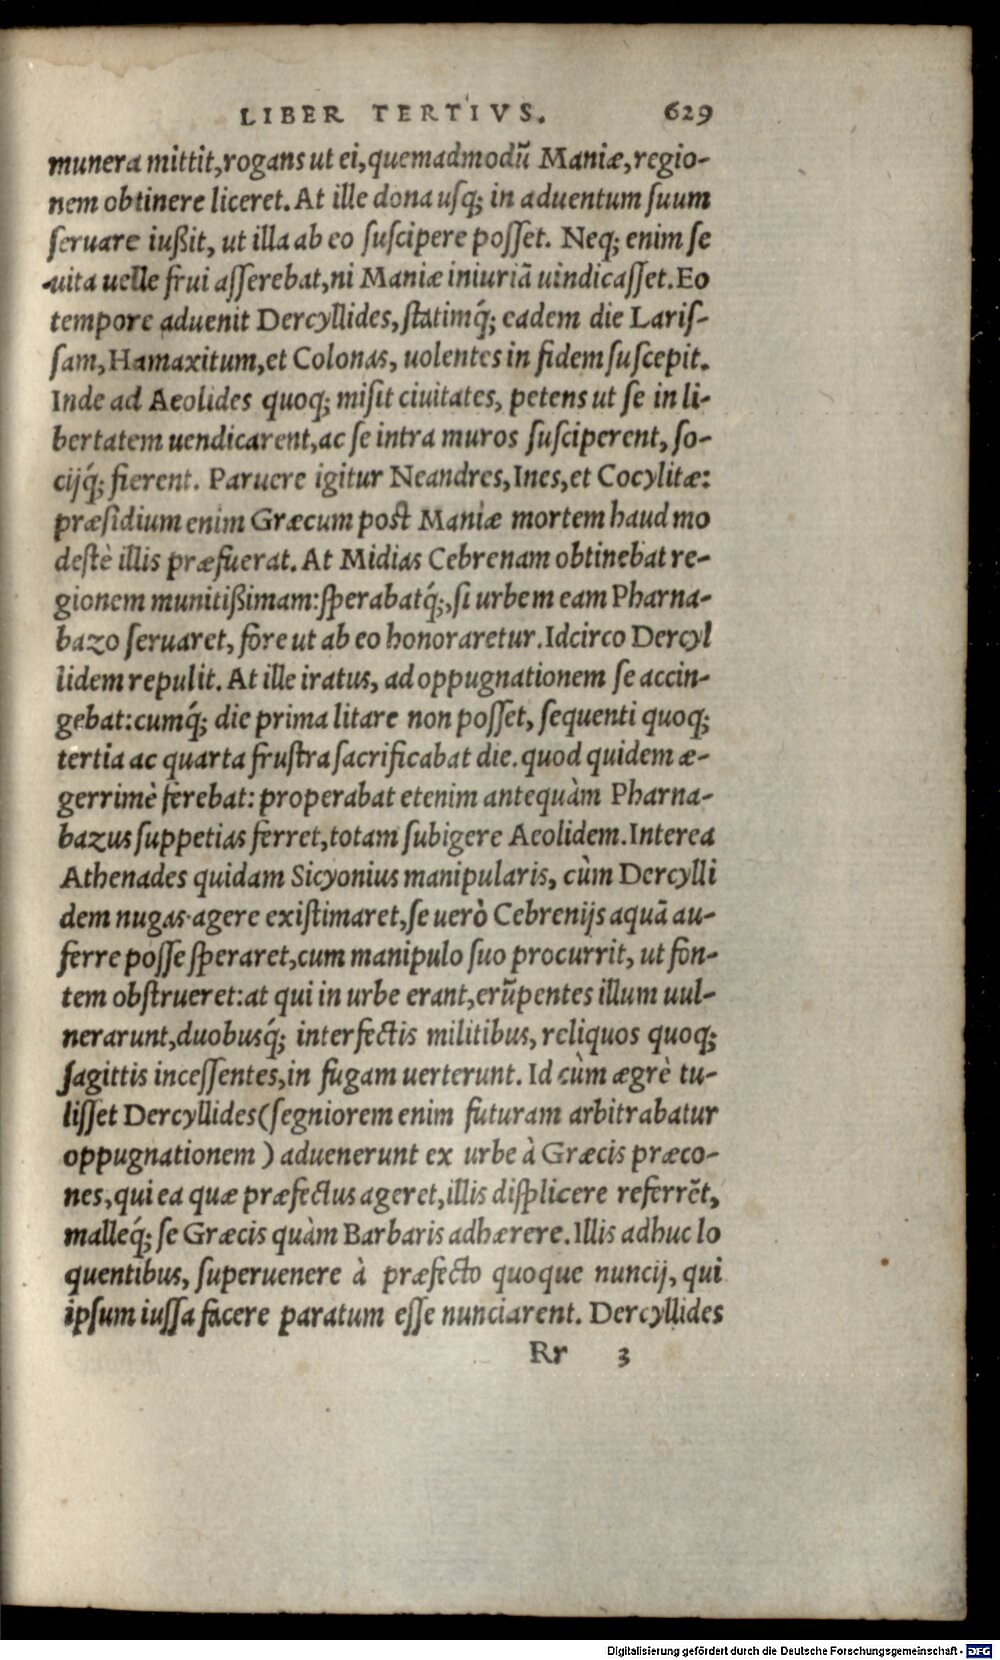 LIBER TERTIVS. 629
munera mittit, rogans ut ei, quemadmodũ Maniæ, regio-
nem obtinere liceret. At ille dona usq; in aduentum suum
seruare iußit, ut illa ab eo suscipere posset. Neq; enim se
uita uelle frui asserebat, ni Maniæ iniuriã uindicasset. Eo
tempore aduenit Dercyllides, statimq́; eadem die Laris-
sam, Hamaxitum, et Colonas, uolentes in fidem suscepit.
Inde ad Aeolides quoq; misit ciuitates, petens ut se in li-
bertatem uendicarent, ac se intra muros susciperent, so-
cijq́; fierent. Paruere igitur Neandres, Ines, et Cocylitæ:
præsidium enim Græcum post Maniæ mortem haud mo
destè illis præfuerat. At Midias Cebrenam obtinebat re-
gionem munitißimam: sperabatq́;, si urbem eam Pharna-
bazo seruaret, fore ut ab eo honoraretur. Idcirco Dercyl
lidem repulit. At ille iratus, ad oppugnationem se accin-
gebat: cumq́; die prima litare non posset, sequenti quoq;
tertia ac quarta frustra sacrificabat die. quod quidem æ-
gerrimè ferebat: properabat etenim antequàm Pharna-
bazus suppetias ferret, totam subigere Aeolidem. Interea
Athenades quidam Sicyonius manipularis, cùm Dercylli
dem nugas agere existimaret, se uerò Cebrenijs aquã au-
ferre posse speraret, cum manipulo suo procurrit, ut fon-
tem obstrueret: at qui in urbe erant, erũpentes illum uul-
nerarunt, duobusq́; interfectis militibus, reliquos quoq;
sagittis incessentes, in fugam uerterunt. Id cùm ægrè tu-
lisset Dercyllides (segniorem enim futuram arbitrabatur
oppugnationem) aduenerunt ex urbe à Græcis præco-
nes, qui ea quæ præfectus ageret, illis displicere referrẽt,
malleq́; se Græcis quàm Barbaris adhærere. Illis adhuc lo
quentibus, superuenere à præfecto quoque nuncij, qui
ipsum iussa facere paratum esse nunciarent. Dercyllides
Rr 3
Digitalisierung gefördert durch die Deutsche Forschungsgemeinschaft - DFG